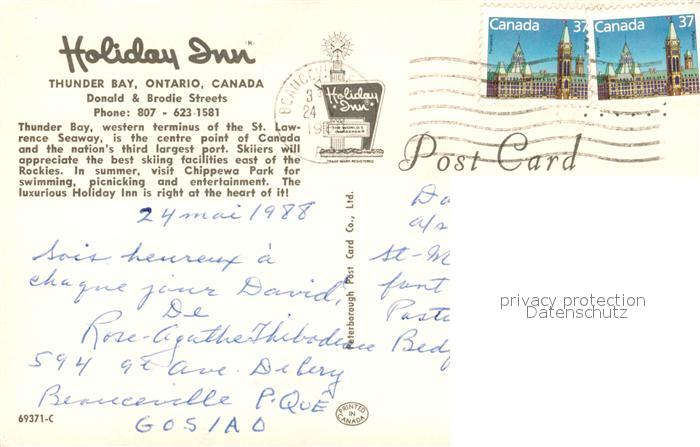 Holiday Inn
THUNDER BAY, ONTARIO, CANADA
Donald & Brodie Streets
Phone: 807 - 623-1581
Thunder Bay, western terminus of the St. Law-
rence Seaway, is the centre point of Canada
and the nation's third largest port. Skiiers will
appreciate the best skiing facilities east of the
Rockies. In summer, visit Chippewa Park for
swimming, picnicking and entertainment. The
luxurious Holiday Inn is right at the heart of it!
24 mai 1988
Sois heureux à
chaque jour David,
De
Rose-Agathe Thibodeau
594 9e Ave. De Léry
Beauceville P. Qué
G0S1A0
69371-C
PRINTED
IN
CANADA
Peterborough Post Card Co., Ltd.
Holiday
Inn
Canada 37
Canada 37
24
Post Card
a/s
St-M
Bed
privacy protection
Datenschutz